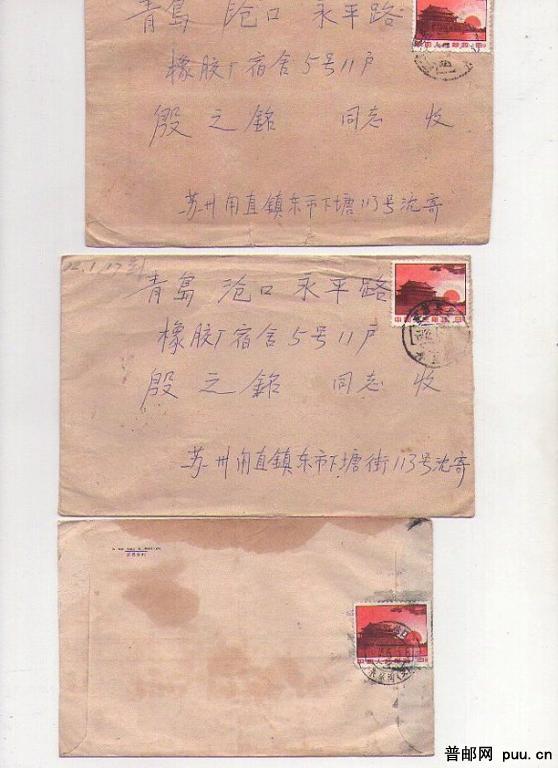 青島 沧口 永平路
橡胶厂宿舍5号11户
殷之銘 同志 收
苏州甪直鎮东市下塘113号沈寄
72.1.17到
青島 沧口 永平路
橡胶厂宿舍5号11户
殷之銘 同志 收
苏州甪直鎮东市下塘街113号沈寄
中国人民邮政
普邮网 puu.cn